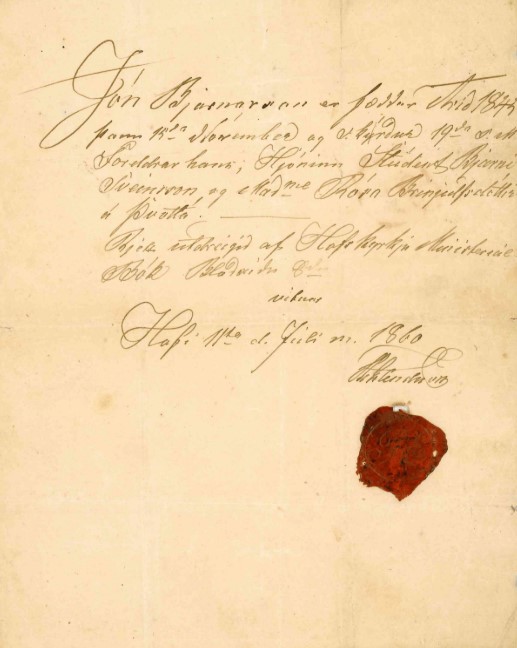 Jón Bjarnarson er fæddur Árid 1845
þann 15da November og skýrdur 19da s. m.
Foreldrar hans, Hjóninn Stúdent Bjarni
Sveinsson og Mad.me Rósa Brinjúlfsdóttir
á Þvottá.
Rjett útdregid af Hofs Kyrkju Ministerial
Bók Bladsídu
vitnar
Hofi 11ta d. Júli m. 1860